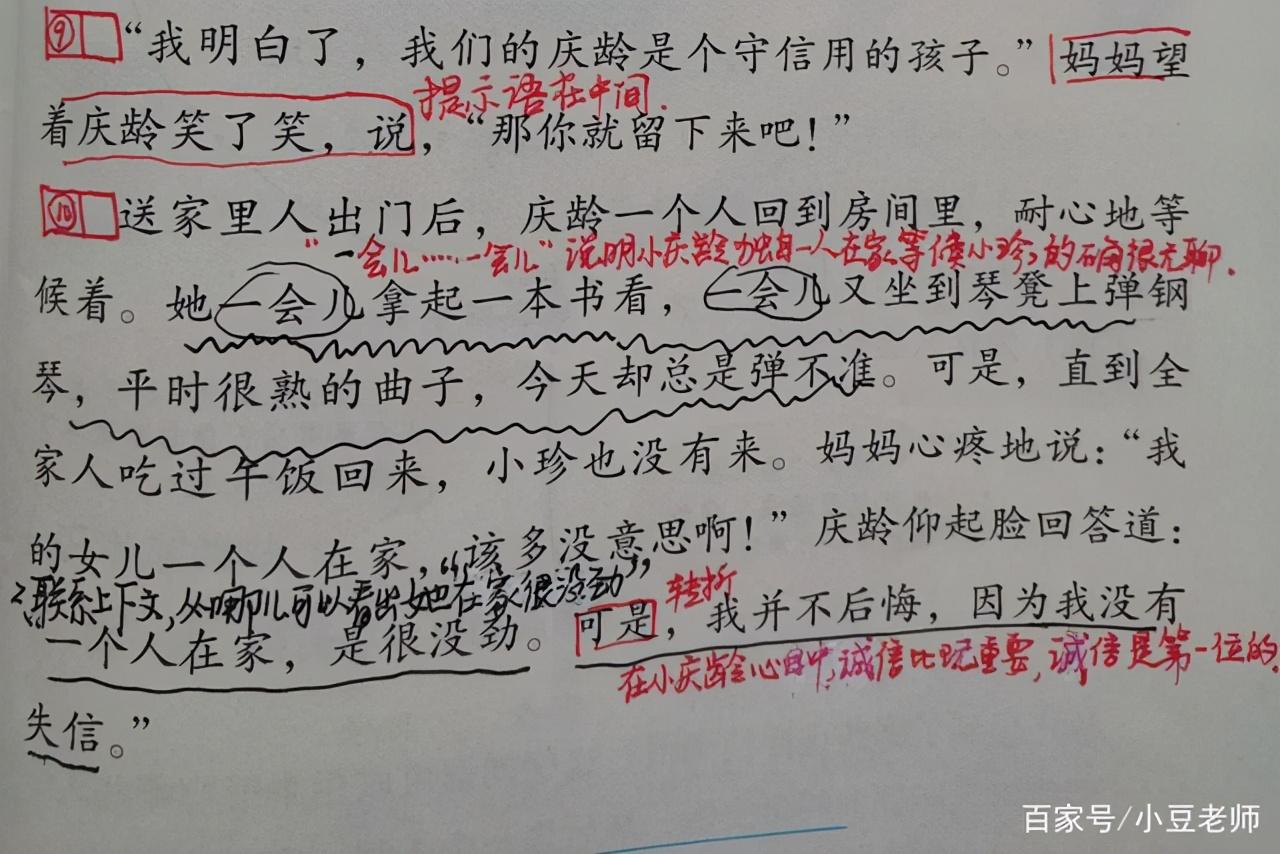 ⑨“我明白了，我们的庆龄是个守信用的孩子。”妈妈望
提示语在中间.
着庆龄笑了笑，说，“那你就留下来吧！”
⑩送家里人出门后，庆龄一个人回到房间里，耐心地等
“一会儿……一会儿”说明小庆龄独自一人在家等候小珍,的确很无聊.
候着。她一会儿拿起一本书看，一会儿又坐到琴凳上弹钢
琴，平时很熟的曲子，今天却总是弹不准。可是，直到全
家人吃过午饭回来，小珍也没有来。妈妈心疼地说：“我
的女儿一个人在家，该多没意思啊！”庆龄仰起脸回答道：
2、联系上下文,从哪儿可以看出她在家很没劲”
转折
“一个人在家，是很没劲。可是，我并不后悔，因为我没有
在小庆龄心目中,诚信比玩重要,诚信是第一位的.
失信。”
百家号/小豆老师